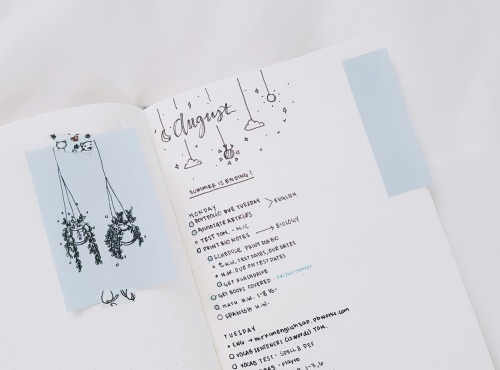 august
SUMMER IS ENDING!
MONDAY
PORTFOLIO DUE TUESDAY > ENGLISH
ANNOTATE ARTICLES
TEST TOM. - MIC
PRINT BIO NOTES → BIOLOGY
SCHEDULE
T.H.W. TEST DATES, DUE DATES
H.W. DUE ON TEST DATES
GET FLASHDRIVE
GET BOOKS COVERED -
MATH H.W. 1-8
SPANISH H.W.
TUESDAY
ENG →
VOCAB SENTENCES (20 WORDS) TOM.
VOCAB TEST - SPELL & DEF